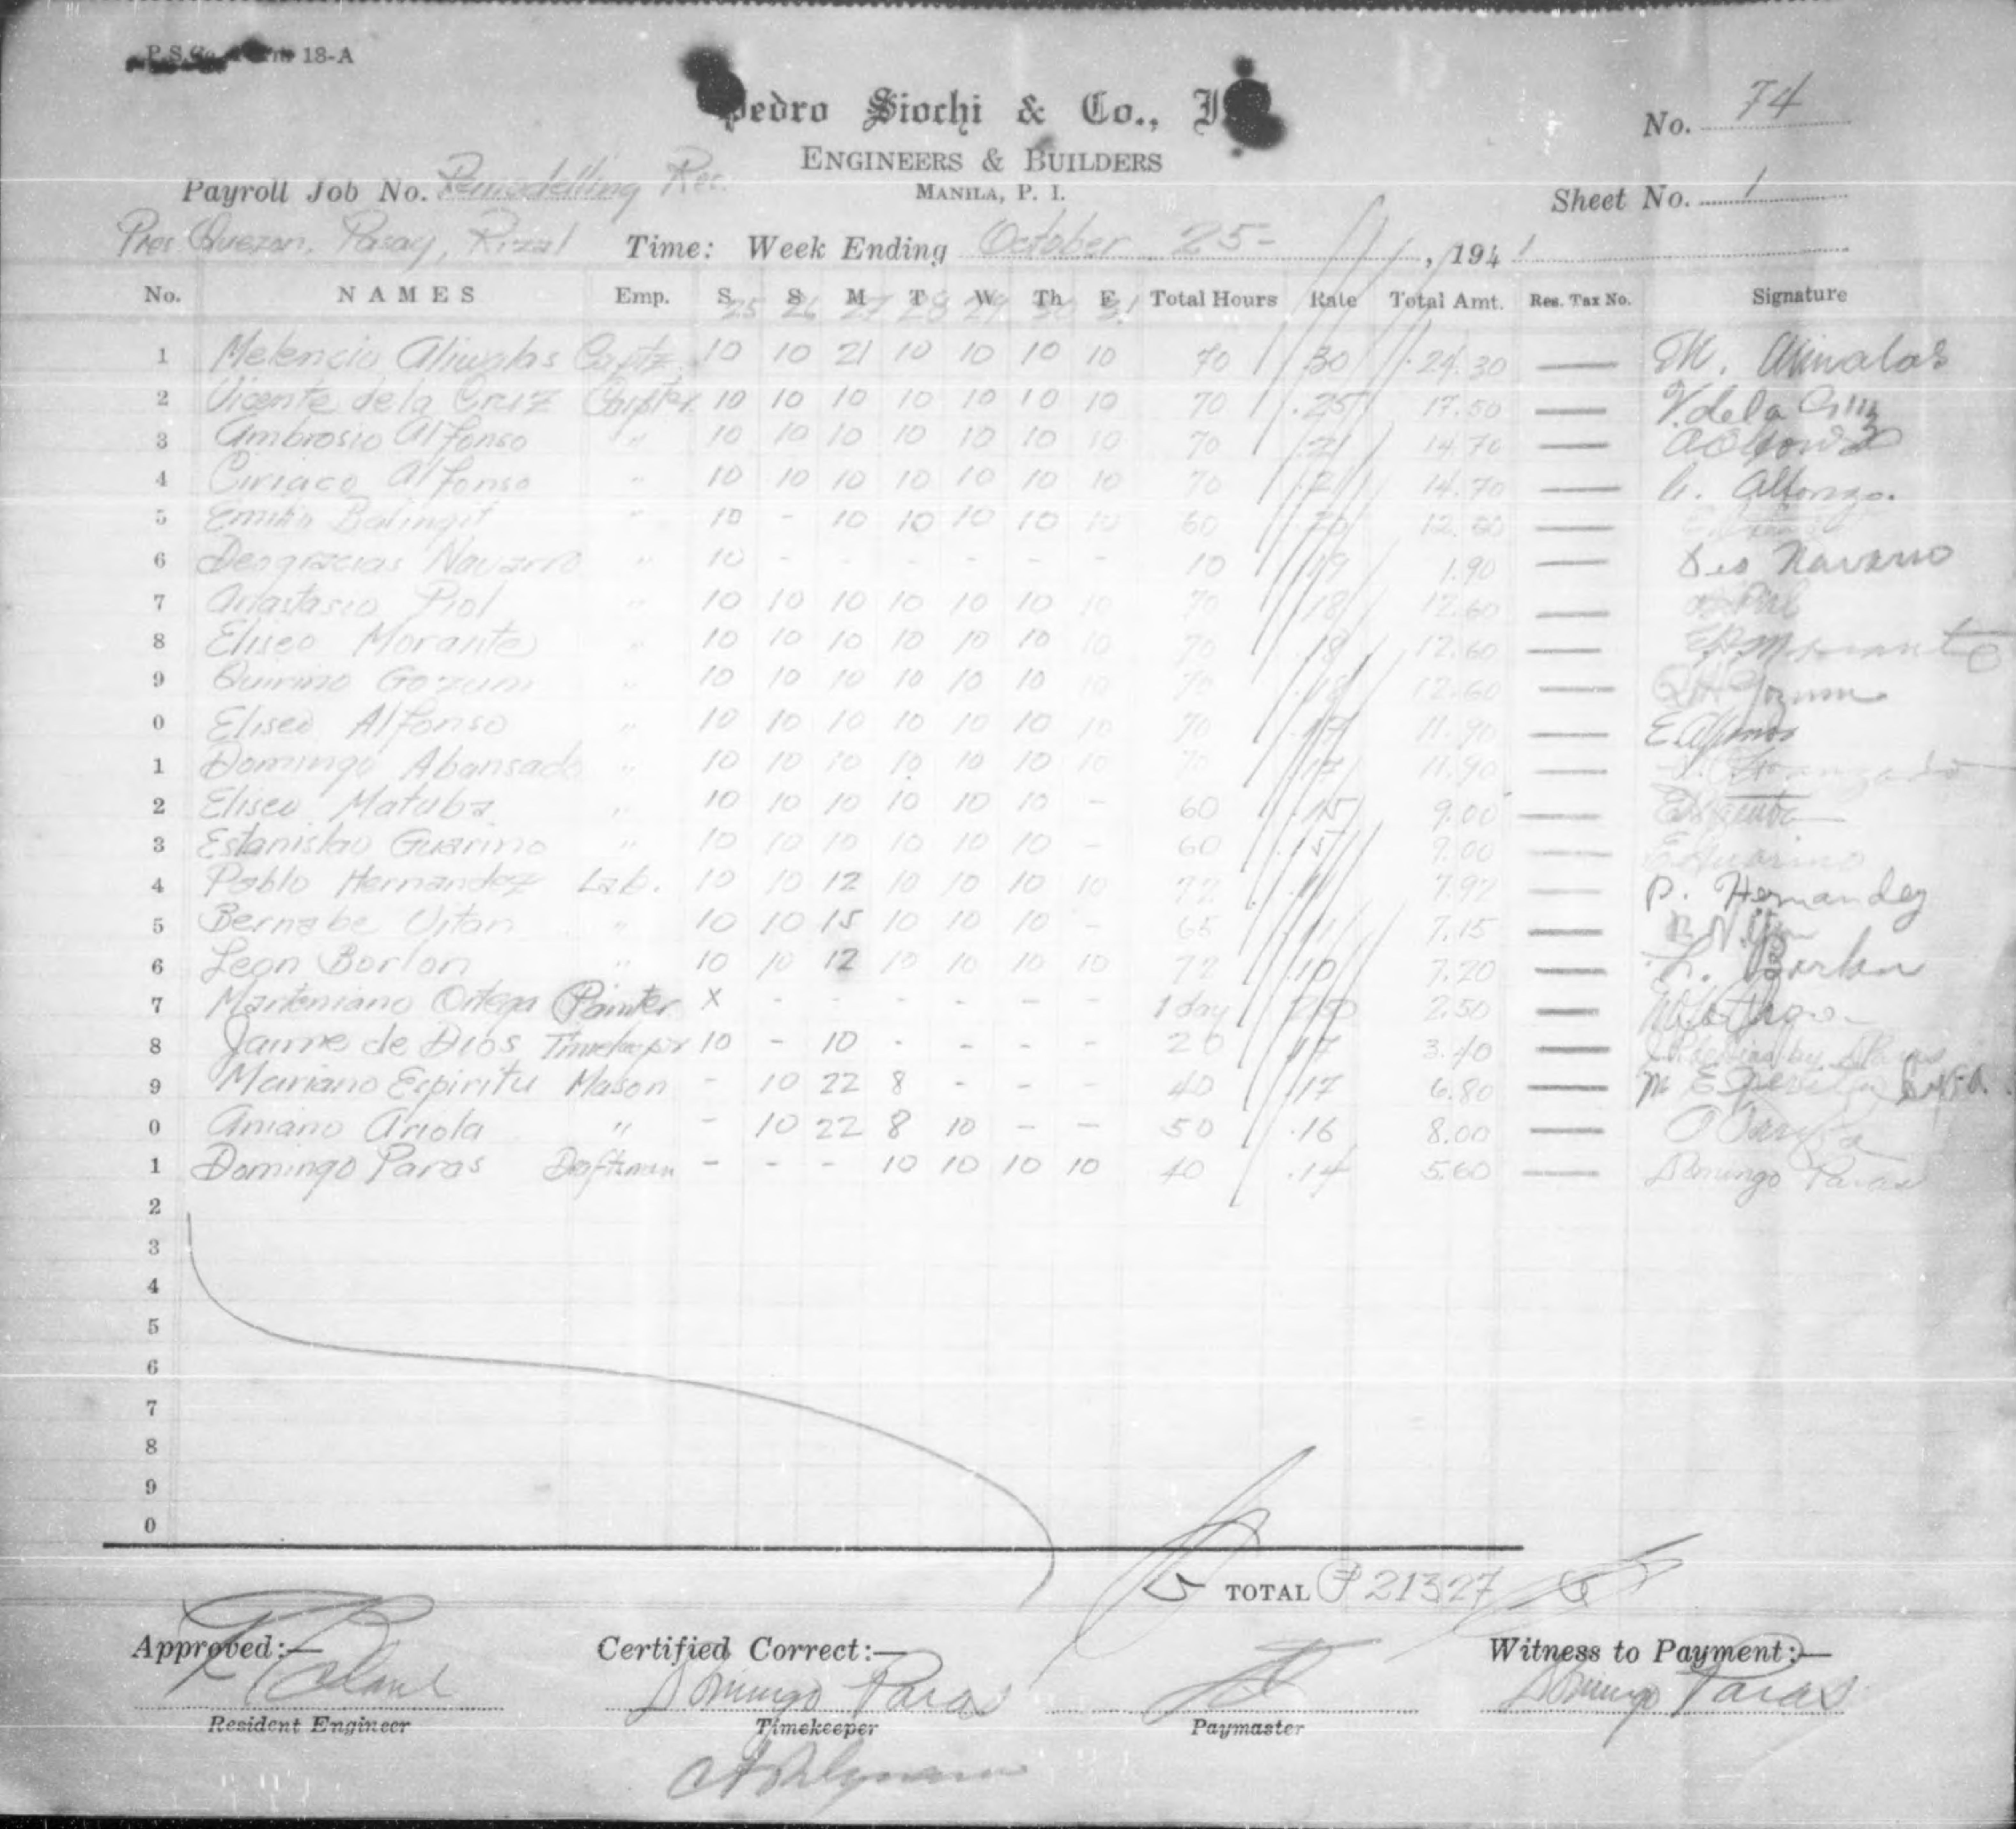 P.S.Co. Form 13-A
Pedro Siochi & Co., I
No. 74
ENGINEERS & BUILDERS
Payroll Job No. Remodelling Res.
MANILA, P. I.
Sheet No. 1
Pres. Quezon, Pasay, Rizal Time: Week Ending October 25- , 1941
No. NAMES Emp. S S M T W Th F Total Hours Rate Total Amt. Res. Tax No. Signature
25 26 27 28 29 30 31
1 Melencio Aliwalas 10 10 21 10 10 10 10 .30 24.30 — M. Aliwalas
2 Vicente de la Cruz 10 10 10 10 10 10 10 70 .25 17.50 — V. de la Cruz
3 Ambrosio Alfonso " 10 10 10 10 10 10 10 70 .21 14.70 —
4 Ciriaco Alfonso " 10 10 10 10 10 10 10 70 .21 14.70 — C. Alfonso.
5 Emilio Balingit " 10 - 10 10 10 10 10 60 .20 12.00 —
6 Deogracias Navarro " 10 - - - - - - 10 .19 1.90 — Deo Navarro
7 Anastasio Piol " 10 10 10 10 10 10 10 70 .18 12.60 —
8 Eliseo Morante " 10 10 10 10 10 10 10 70 .18 12.60 — Morante
9 Quirino Gozum " 10 10 10 10 10 10 10 70 .18 12.60 — Gozum
0 Eliseo Alfonso " 10 10 10 10 10 10 10 70 .17 11.90 — E. Alfonso
1 Domingo Abansado " 10 10 10 10 10 10 10 70 .17 11.90 —
2 Eliseo Matuba " 10 10 10 10 10 10 - 60 .15 9.00 —
3 Estanislao Guarino " 10 10 10 10 10 10 - 60 .15 9.00 — E. Guarino
4 Pablo Hernandez Lab. 10 10 12 10 10 10 10 72 .11 7.92 — P. Hernandez
5 Bernabe Vitan " 10 10 15 10 10 10 - 65 .11 7.15 —
6 Leon Borlon " 10 10 12 10 10 10 10 72 .10 7.20 — L. Borlon
7 Marteniano Ortega Painter X - - - - - - 1 day 2.50 2.50 —
8 Jaime de Dios Timekeeper 10 - 10 - - - - 20 .17 3.40 —
9 Mariano Espiritu Mason - 10 22 8 - - - 40 .17 6.80 — M Espiritu
0 Amano Ariola " - 10 22 8 10 - - 50 .16 8.00 —
1 Domingo Paras Daftsman - - - 10 10 10 10 40 .14 5.60 — Domingo Paras
2
3
4
5
6
7
8
9
0
TOTAL ₱ 213.27
Approved:— Certified Correct:— Witness to Payment:—
Domingo Paras Domingo Paras
Resident Engineer Timekeeper Paymaster